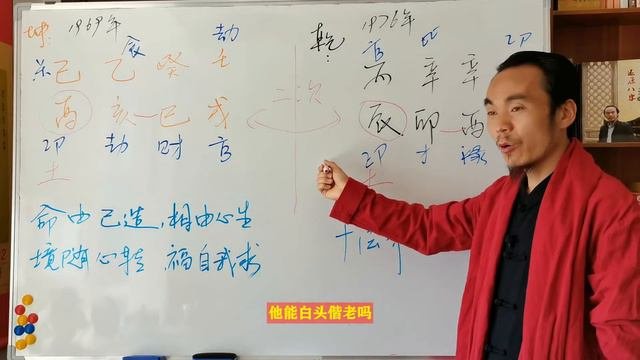 坤: 1969年 劫
杀 己 乙 癸 壬
酉 亥 巳 戌
印 劫 财 官
土
命由己造，相由心生
境随心转 福自我求
二次
乾: 1976年
官 比 印
丙 辛 辛
辰 卯 酉
印 才 禄
土
他能白头偕老吗